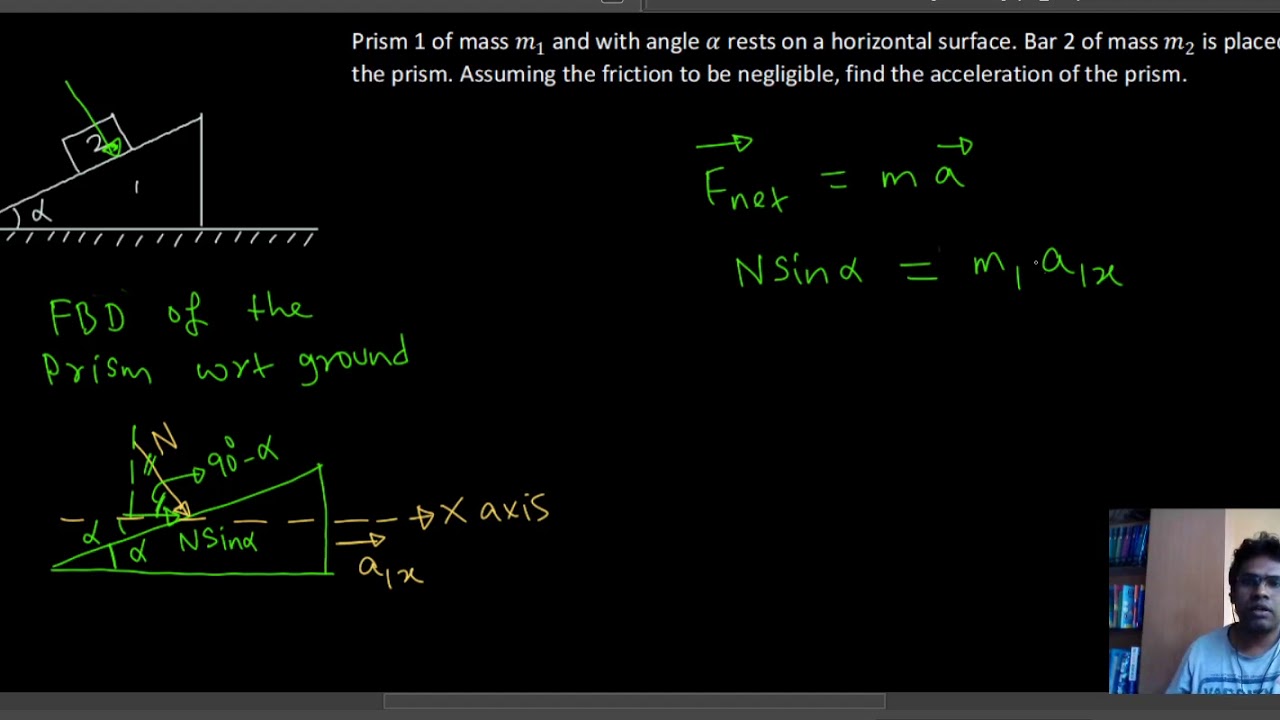 Prism 1 of mass m₁ and with angle α rests on a horizontal surface. Bar 2 of mass m₂ is
the prism. Assuming the friction to be negligible, find the acceleration of the prism.
2
1
α
F⃗net = m a⃗
N sin α = m₁ · a₁ₓ
FBD of the
Prism wrt ground
N
90° - α
X axis
α
α
N Sin α
a₁ₓ